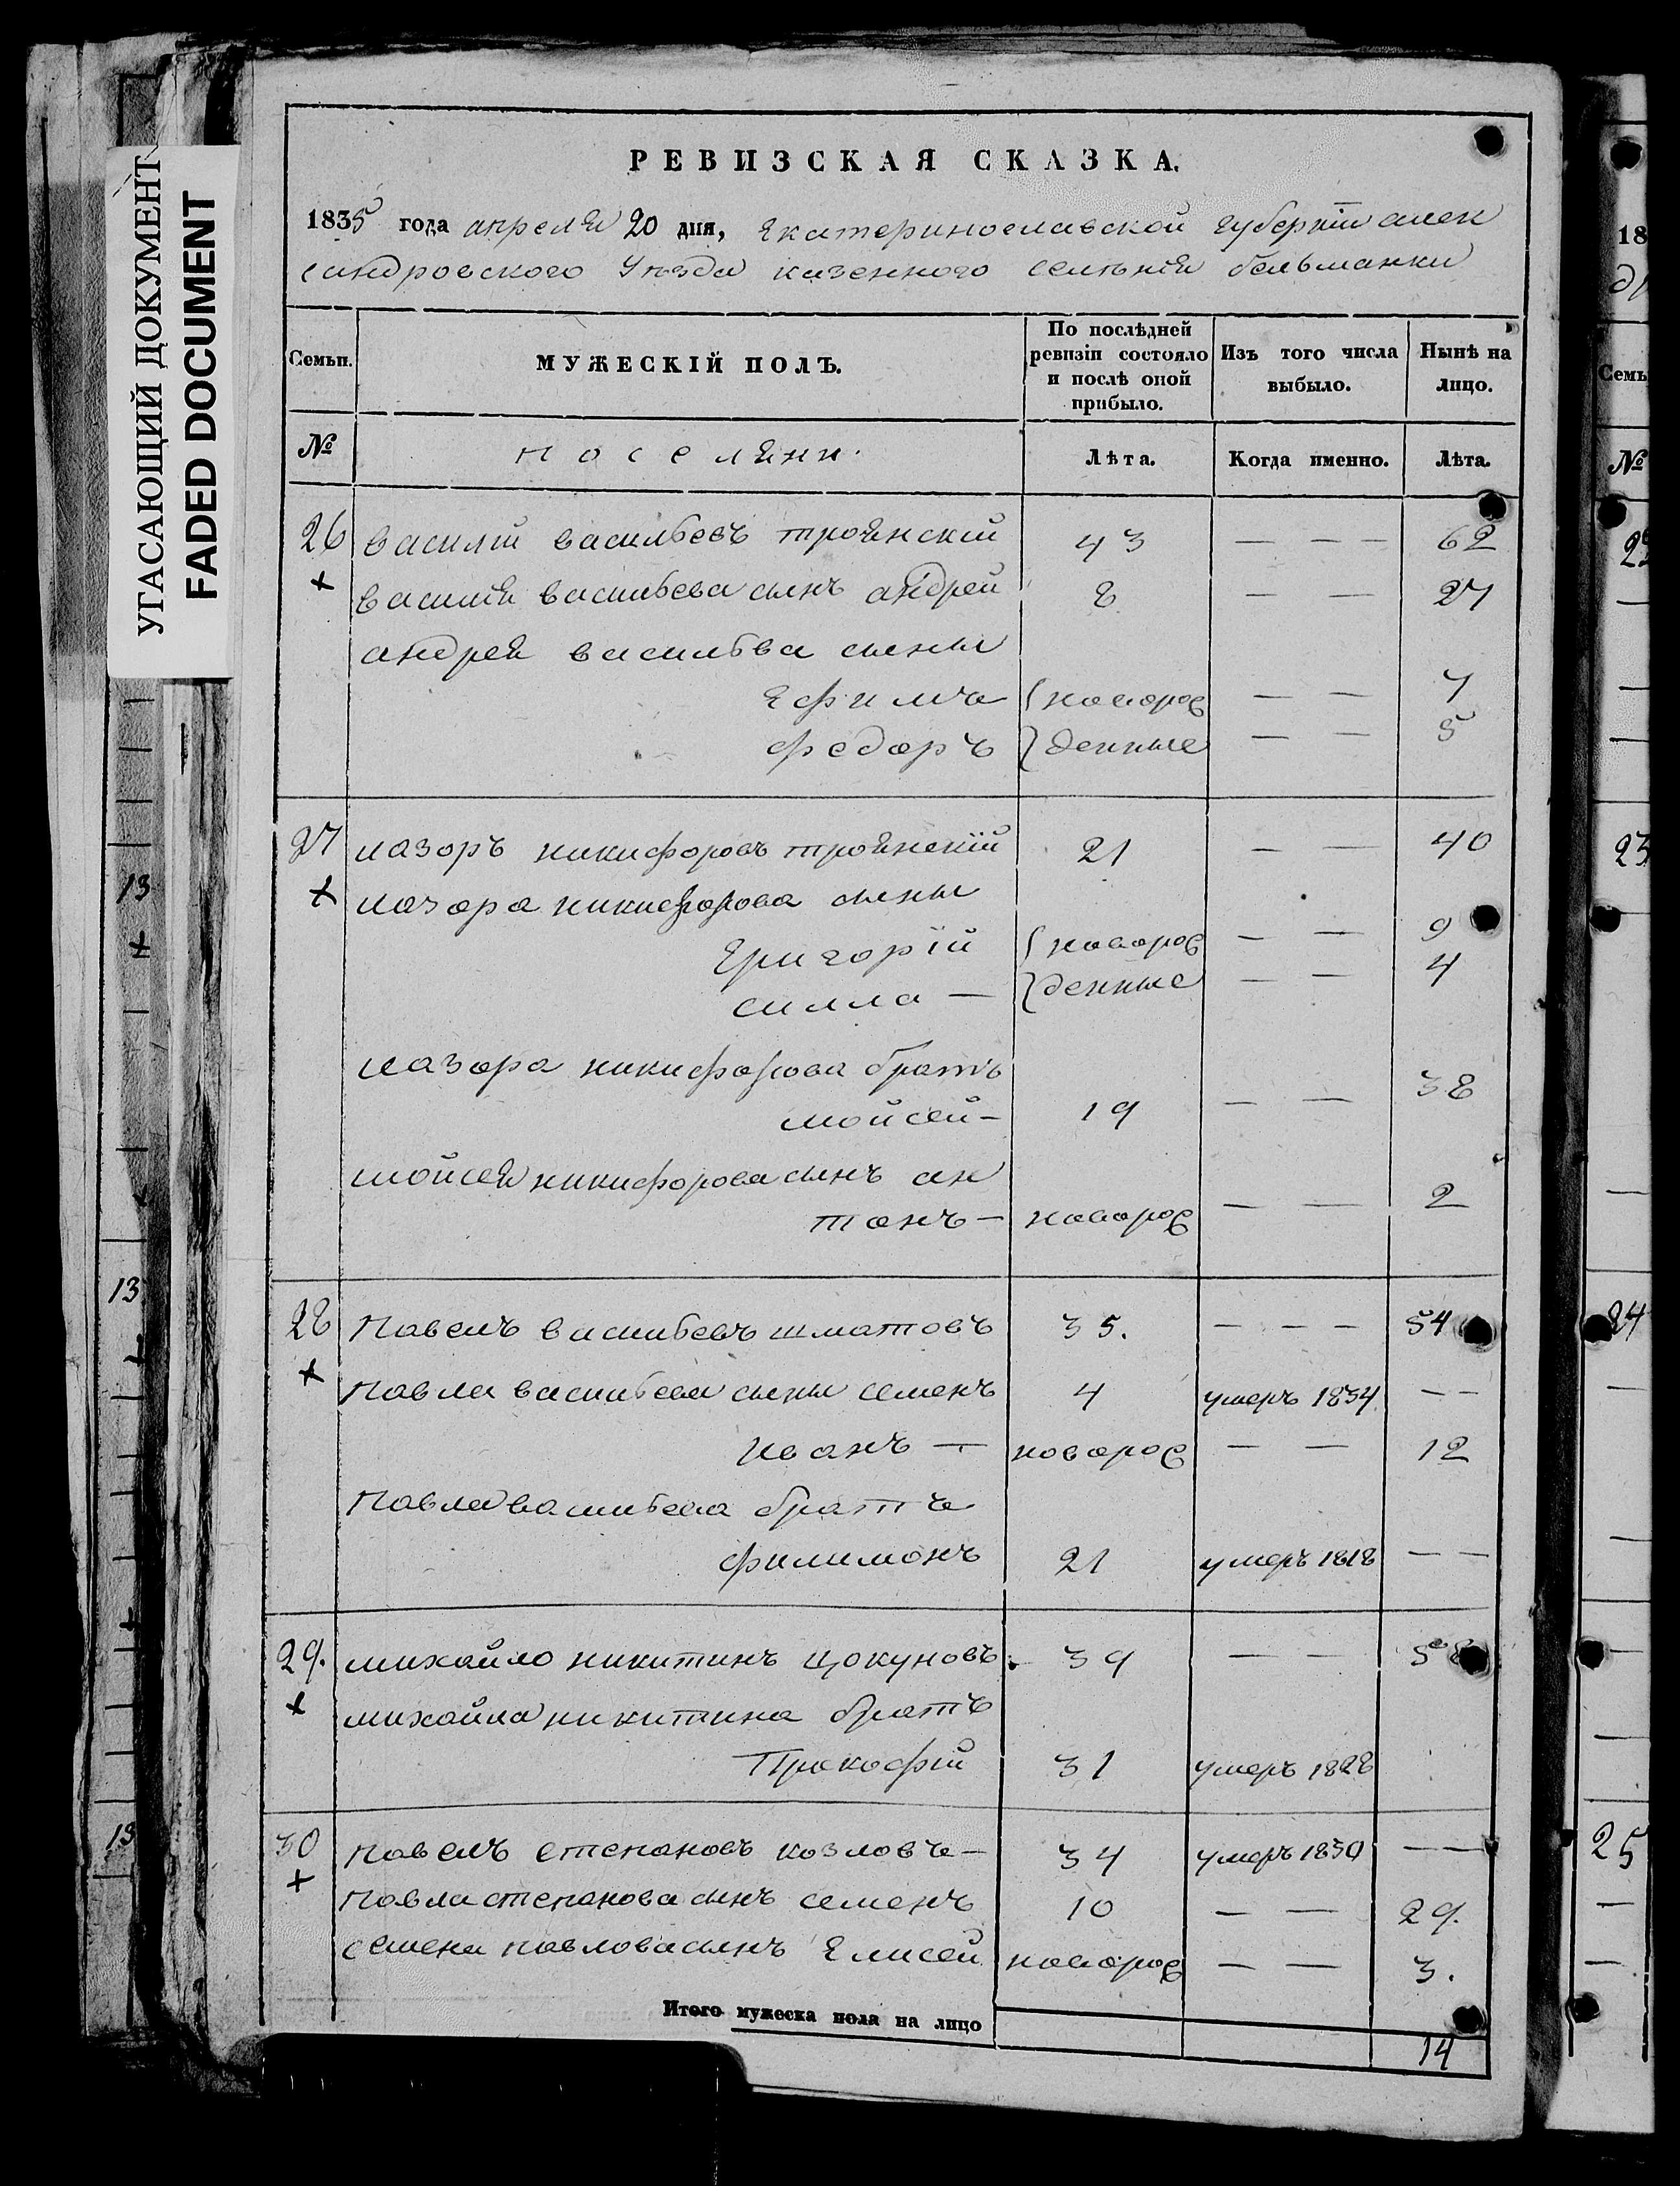 УГАСАЮЩИЙ ДОКУМЕНТ
FADED DOCUMENT
РЕВИЗСКАЯ СКАЗКА.
1835 года апреля 20 дня, Екатеринославской губернiи алек
сандровского Уъзда казенного селенiя бельманки
Семьи. МУЖЕСКIЙ ПОЛЪ. По послѣдней ревизiи состояло и послѣ оной прибыло. Изъ того числа выбыло. Нынѣ на лицо.
№ поселяни. Лѣта. Когда именно. Лѣта.
26 василiй васильевъ троянскiй 43 — — — 62
+ василiя васильева сынъ андрей 8 — — 27
андрея васильва сыны
Ефимъ новорож — — 7
федоръ денные — — 5
27 лазоръ никифоровъ троянскiй 21 — — 40
+ лазора никифорова сыны
григорiй новорож — — 9
силла — денные — — 4
лазора никифорова братъ
мойсей — 19 — — 38
мойсея никифорова сынъ ан
тонъ — новорож — — 2
28 Павелъ васильевъ шматовъ 35. — — — 54
+ Павла васильева сыны семенъ 4 умеръ 1834 — —
иванъ — новорож — — 12
Павла васильева братъ
филимонъ 21 умеръ 1818 — —
29. михайло никитинъ цокуновъ. 39 — — 58
+ михайла никитина братъ
Прокофiй 31 умеръ 1828
30 павелъ степановъ козловъ — 34 умеръ 1830 — —
+ Павла степанова сынъ семенъ 10 — — 29.
семена павлова сынъ Елисей новорож — — 3.
Итого мужеска пола на лицо 14
13
+
13
+
+
13
18
Семь
№
23
24
25